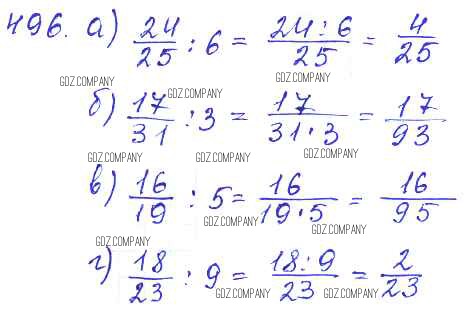 496. а) 24/25 : 6 = 24:6/25 = 4/25
GDZ.COMPANY GDZ.COMPANY
GDZ.COMPANY
б) 17/31 : 3 = 17/31·3 = 17/93
GDZ.COMPANY GDZ.COMPANY GDZ.COMPANY
в) 16/19 : 5 = 16/19·5 = 16/95
GDZ.COMPANY GDZ.COMPANY
GDZ.COMPANY
г) 18/23 : 9 = 18:9/23 = 2/23
GDZ.COMPANY GDZ.COMPANY